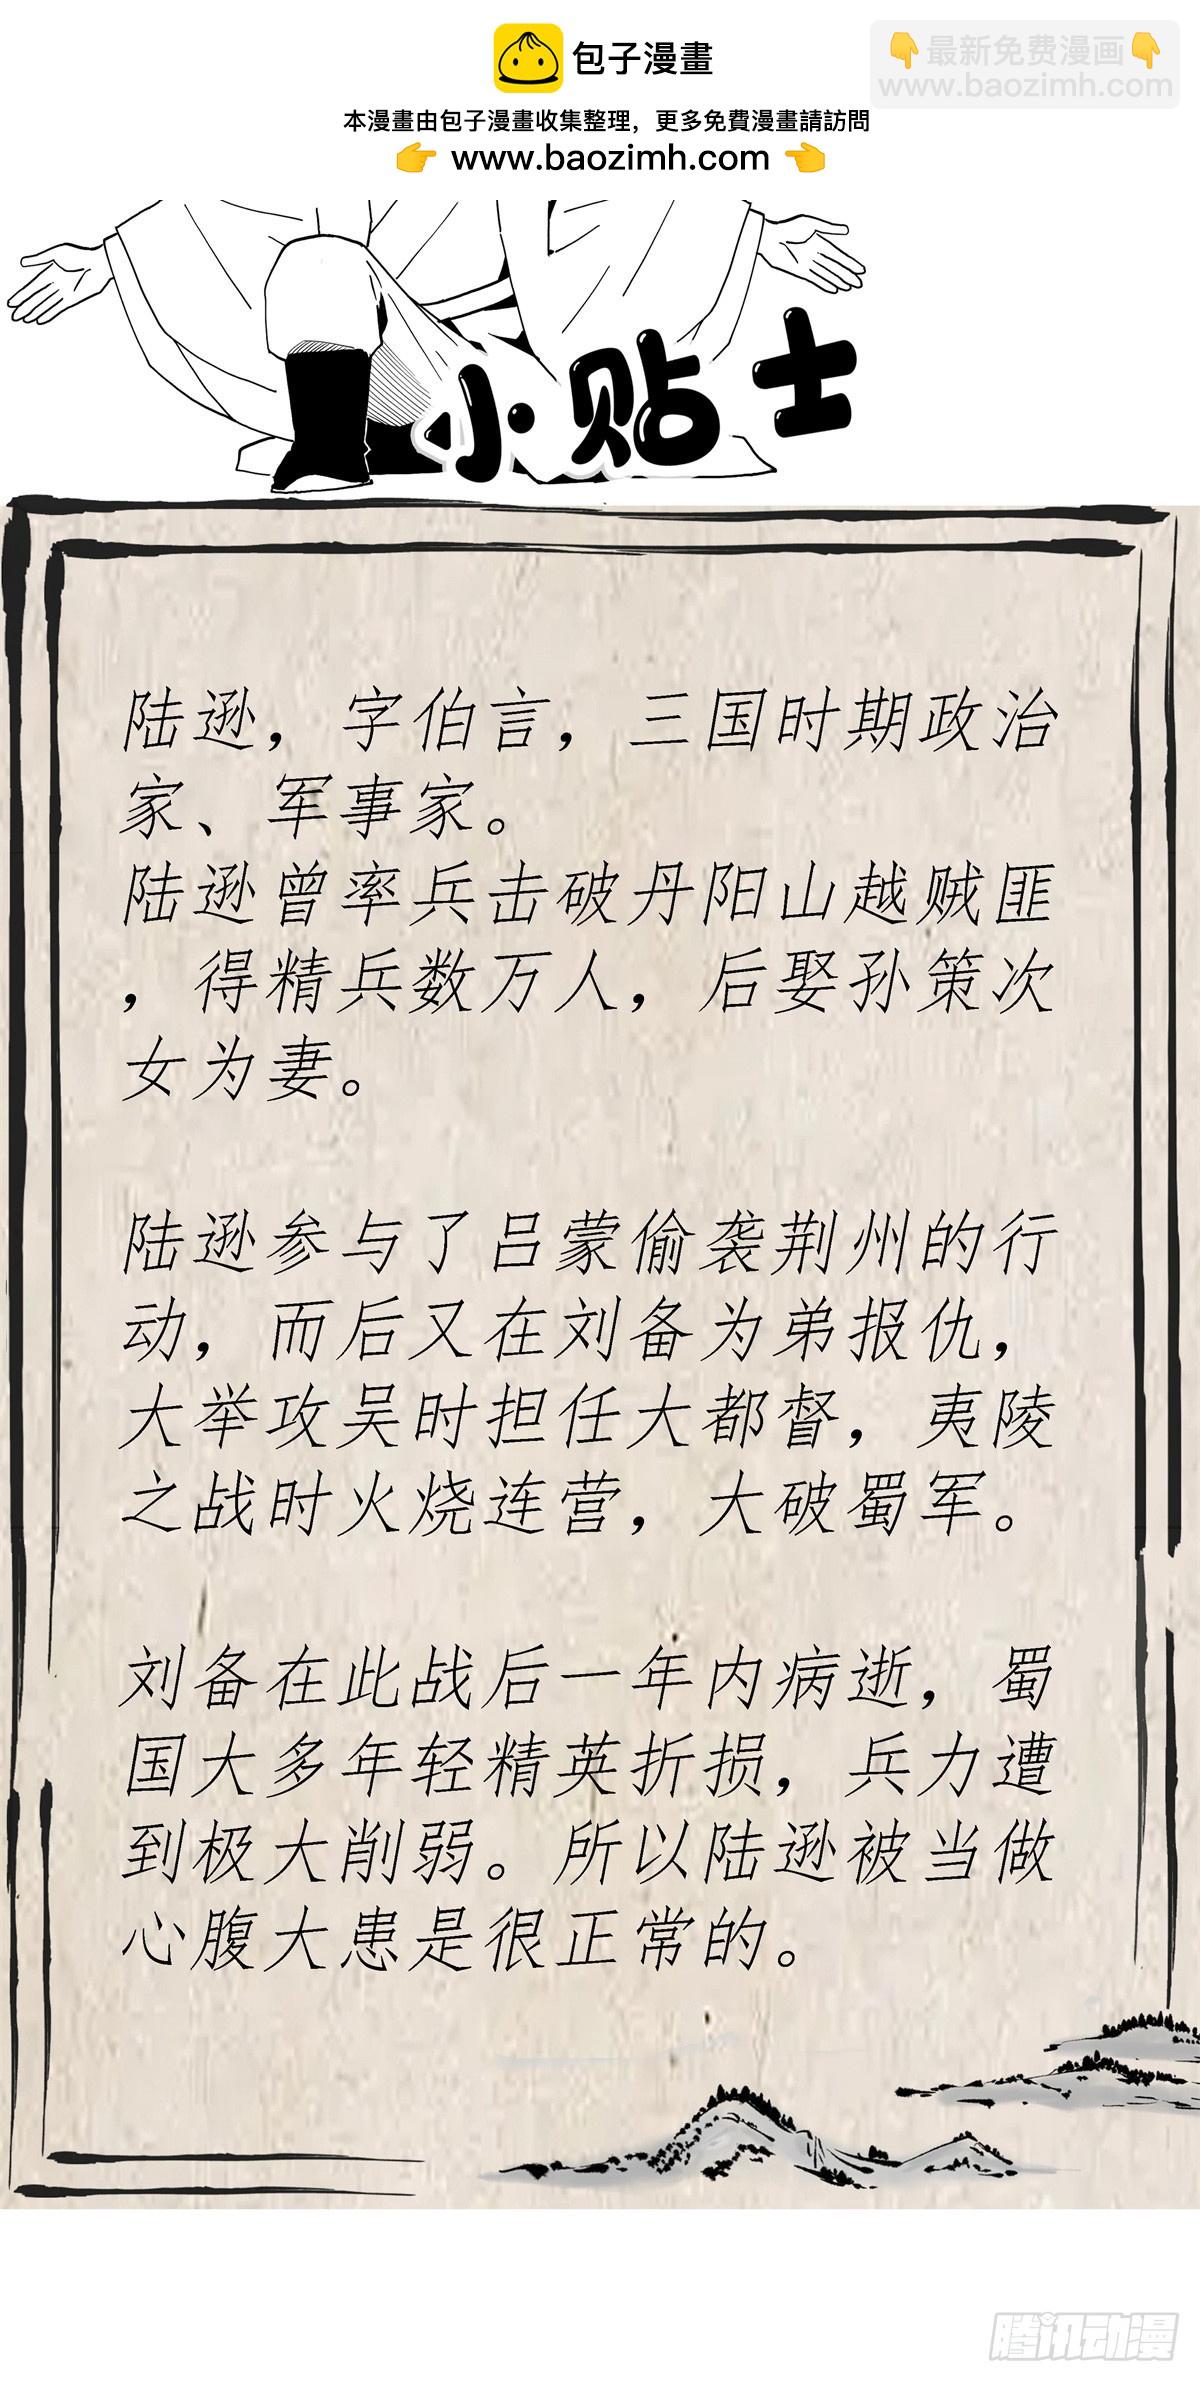 包子漫畫
👇最新免费漫画👇
www.baozimh.com
本漫畫由包子漫畫收集整理，更多免費漫畫請訪問
👉 www.baozimh.com 👈
小贴士
陆逊，字伯言，三国时期政治
家、军事家。
陆逊曾率兵击破丹阳山越贼匪
，得精兵数万人，后娶孙策次
女为妻。
陆逊参与了吕蒙偷袭荆州的行
动，而后又在刘备为弟报仇，
大举攻吴时担任大都督，夷陵
之战时火烧连营，大破蜀军。
刘备在此战后一年内病逝，蜀
国大多年轻精英折损，兵力遭
到极大削弱。所以陆逊被当做
心腹大患是很正常的。
腾讯动漫